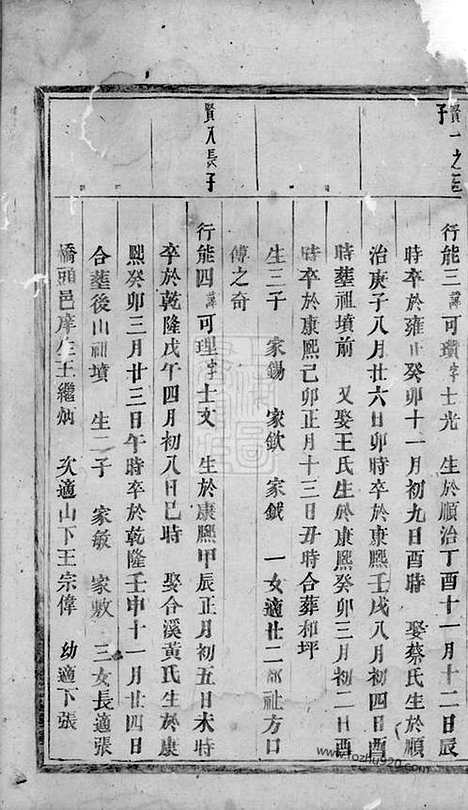 賢一之三
子
行能三諱可瓚字士光 生於順治丁酉十一月十二日辰
時卒於雍正癸卯十一月初九日酉時 娶蔡氏生於順
治庚子八月廿六日卯時卒於康熙壬戌八月初四日酉
時塟祖墳前 又娶王氏生於康熙癸卯三月初二日酉
時卒於康熙己卯正月十三日丑時合葬和坪
生三子 家錫 家欽 家鉞 一女適廿二都祉方口
傅之奇
賢八長子
行能四諱可理字士文 生於康熙甲辰正月初五日未時
卒於乾隆戊午四月初八日巳時 娶合溪黃氏生於康
熙癸卯三月廿三日午時卒於乾隆壬申十一月廿四日
合塟後山祖墳 生二子 家敏 家敷 三女長適張
橋頭邑庠生王繼炳 次適山下王宗偉 幼適下張
www.fozhu920.com